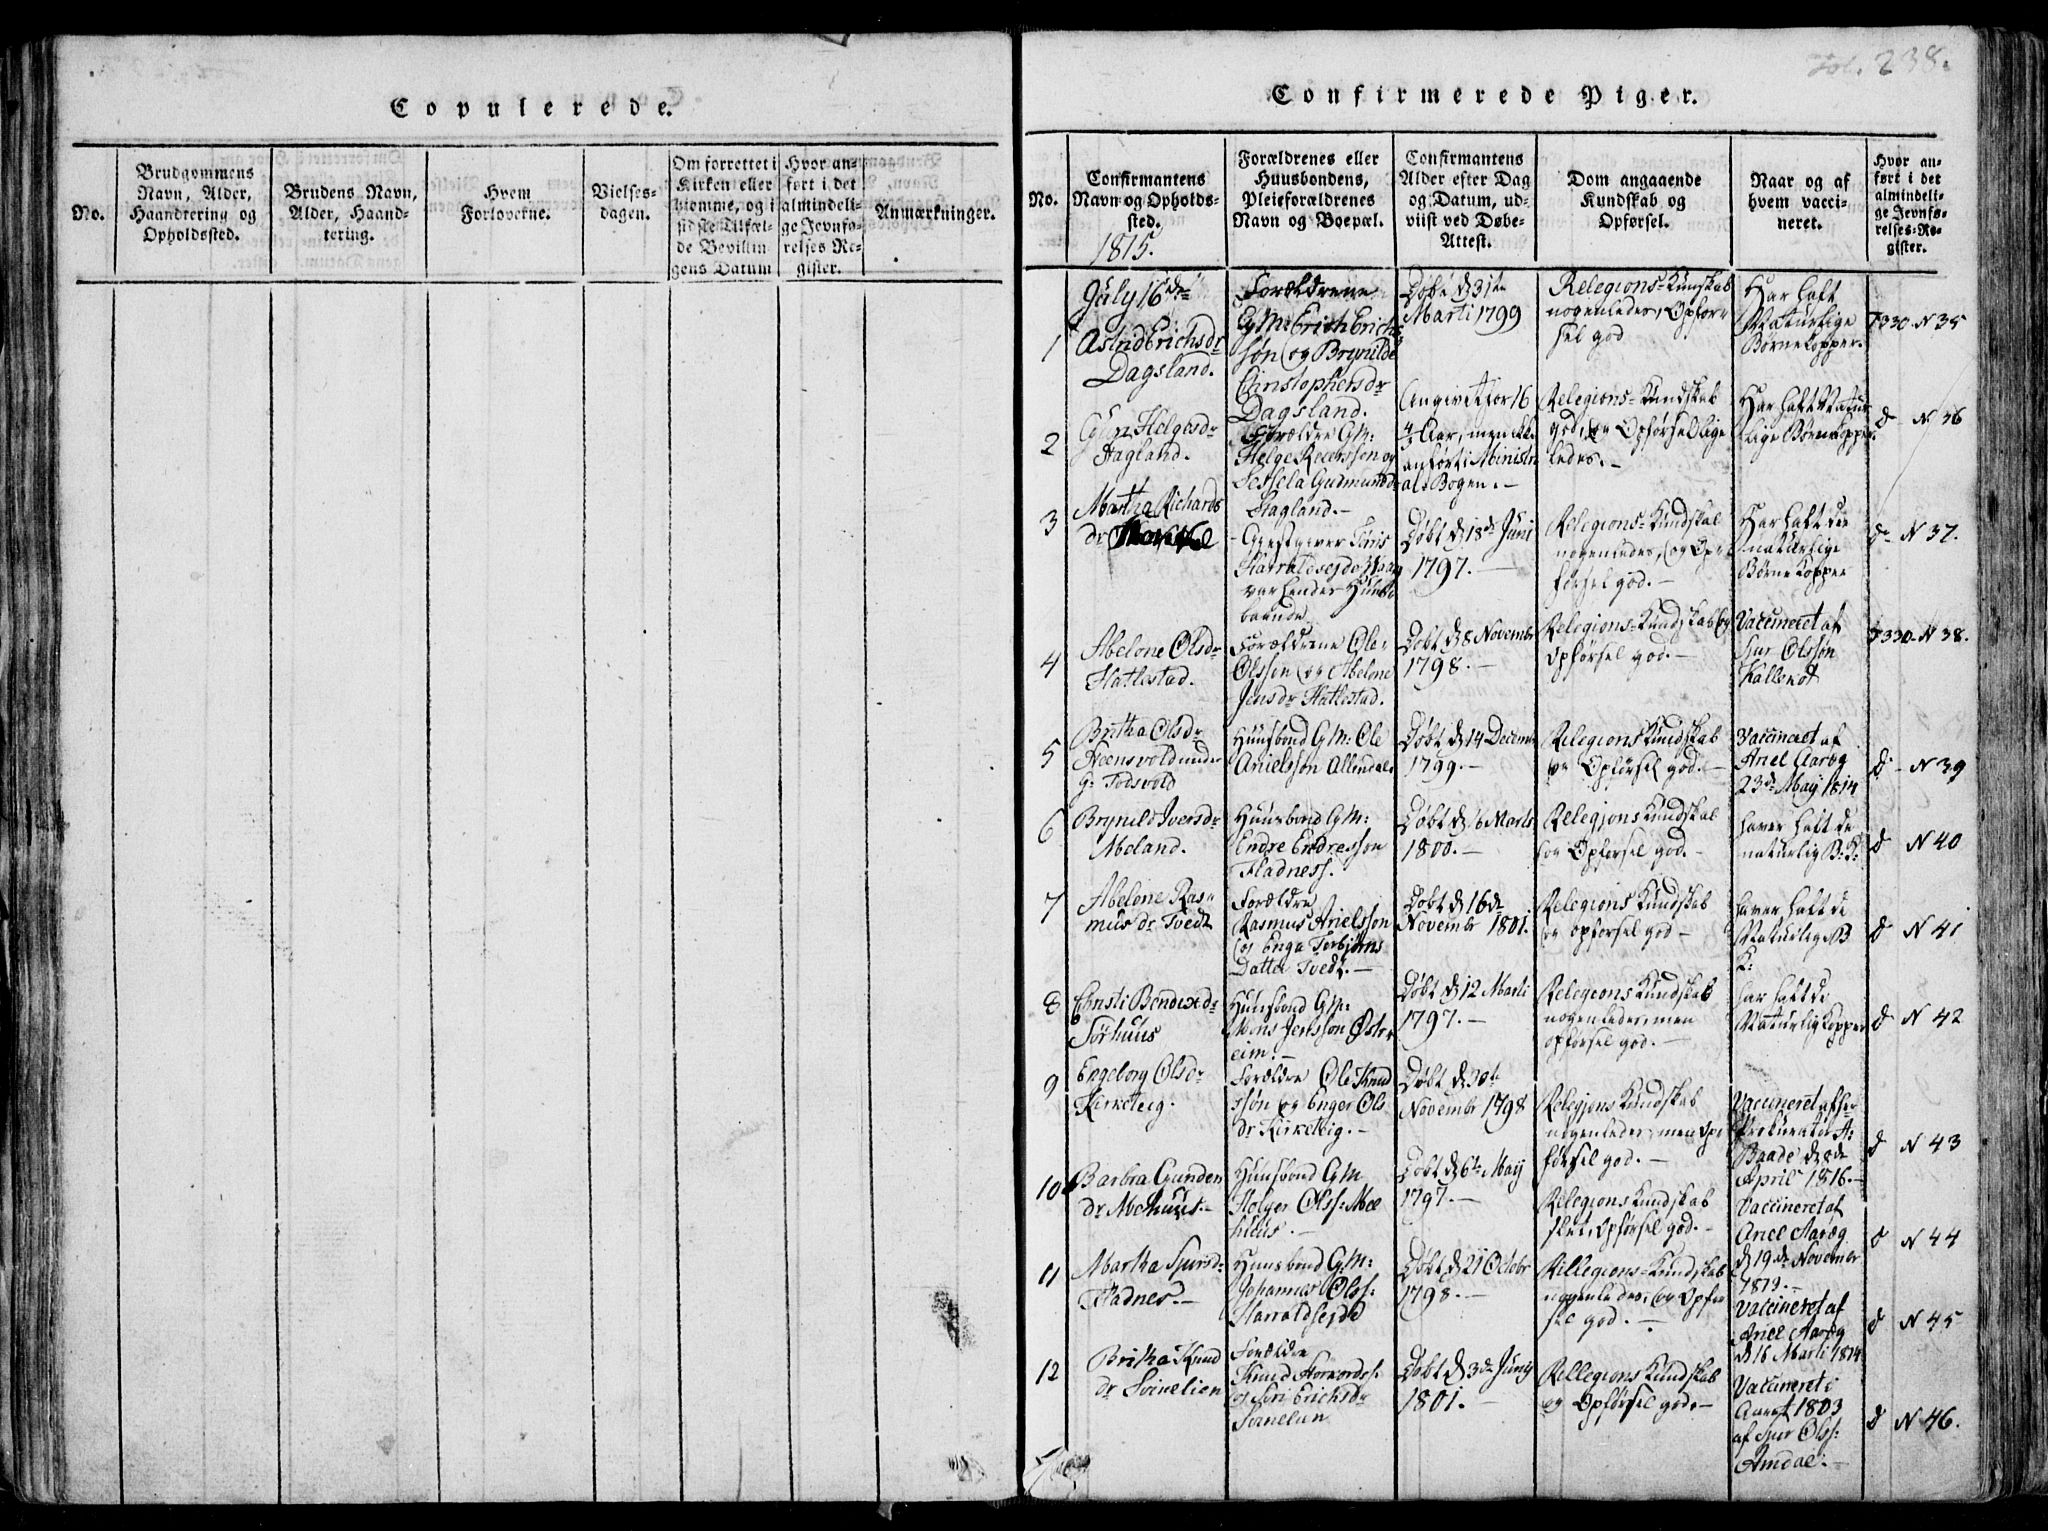 Copulerede.
No.
Brudgommens
Navn, Alder,
Haandtering og
Opholdssted.
Brudens Navn,
Alder, Haand-
tering.
Hvem
Forloverne.
Vielses-
dagen.
Om forrettet i
Kirken eller
hjemme, og i
sidste Tilfæl-
de Bevillin-
gens Datum
Hvor an-
ført i det
almindeli-
ge Jevnfø-
relses Re-
gister.
Anmærkninger.
Fol. 238.
Confirmerede Piger.
No.
Confirmantens
Navn og Opholds-
sted.
1815.
Forældrenes eller
Huusbondens,
Pleieforældrenes
Navn og Boepæl.
Confirmantens
Alder efter Dag
og Datum, ud-
viist ved Døbe-
Attest.
Dom angaaende
Kundskab og
Opførsel.
Naar og af
hvem vacci-
neret.
Hvor an-
ført i det
almindeli-
ge Jevnfø-
relses-Re-
gister.
July 16de
1
Astrid Erichsdr
Dagsland.
Forældrene
GM: Erich Erich-
søn og Brynilde
Christophersdr
Dagsland.
Døbt d 31te
Marti 1799
Relegions-Kundskab
nogenledes, Opfør-
sel god
Har haft
Naturlige
Børnekopper.
F 330 N 35
2
Guri Helgesdr
Hagland.
Forældre GM:
Helge
og
Sessela Gudmundsd
Hagland.-
Angivet for 16
Aar, men ikke
anført i Ministri
als Bogen.-
Relegions-Kundskab
god, og Opførsel lige
ledes.-
Har haft Natur
lige Børnekopper.
d N 36
3
Martha Richards
dr
Giestgiver
var hendes Huus
bonde
Døbt d 18de Juni
1797.-
Relegions-Kundskab
nogenledes, og Op
førsel god.-
Har haft de
naturlige
Børnekopper
d N 37.
4
Abelone Olsdr
Hatlestad.
Forældrene Ole
Olssøn og Abelone
Jensdr Hatlestad.
Døbt d 8 Novembr
1798.-
Relegions-Kundskab og
Opførsel god.-
Vaccineret af
Siur Olssøn
F 330 N 38.
5
Britha Olsdr
g: Todsvold
Huusbond GM: Ole
Arielssøn
Døbt d 14 Decembr
1799.-
Relegions Kundskab
og Opførsel god.-
Vaccineret af
Ariel Aarøg
23de May 1814
d N 39
6
Brynild Iversdr
Meland.
Huusbond GM:
Endre Endressøn
Fladness.
Døbt d 16 Marti
1800.-
Relegions Kundskab
og Opførsel god.-
haver haft de
naturlig B: K:
d N 40
7
Abelone Ras-
mus dr Tvedt
Forældre
Rasmus Arielssøn
og Enga Torbiørns
Datter Tvedt.-
Døbt d 16de
Novembr 1801.
Relegions Kundskab
og opførsel god-
haver haft de
Naturlig B
K:
d N 41
8
Christi Bendixdr
Sørhuus
Huusbond GM:
Mons Jenssøn Øster
eim.-
Døbt d 12 Marti
1797.-
Relegeons Kundskab
nogenledes, men
opførsel god.-
har haft de
Naturlig Kopper
d N 42
9
Engeborg Olsdr
Kirketeig.
Forældre Ole Knud
ssøn og Enger Ols
dr Kirketeig.-
Døbt d 30te
Novembr 1798
Relegjons Kundskab
nogenledes, men Op
førsel god.-
Vaccineret af Hr
Prokurator A:
Baade d 8de
April 1816.-
d N 43
10
Barbra Gunden
dr Mehuus.-
Huusbond GM
Holger Olss: Me
huus.-
Døbt d 6te May
1797.-
Relegions Kundskab
slet, Opførsel god.-
Vaccineret af
Ariel Aarøg
d 19de November
1813.-
d N 44
11
Martha Sjursd
Fladnes.-
Huusbond G:M:
Johannes Olss:
Harraldsejde
Døbt d 21 Octobr
1798.-
Rillegions-Kundskab
nogenledes, og Opfør
sel god.-
Vaccineret af
Ariel Aarøg
d 16 Marti 1814
d N 45
12
Britha Knud
dr Svinelien
Forældre
Knud
og Siri Erichsdr
Svinelien
Døbt d 3de Juny
1801.-
Rellegions Kundskab
og Opførsel god.-
Vaccineret i
Aaret 1803
af Sjur Olss:
Amdal.-
d N 46.